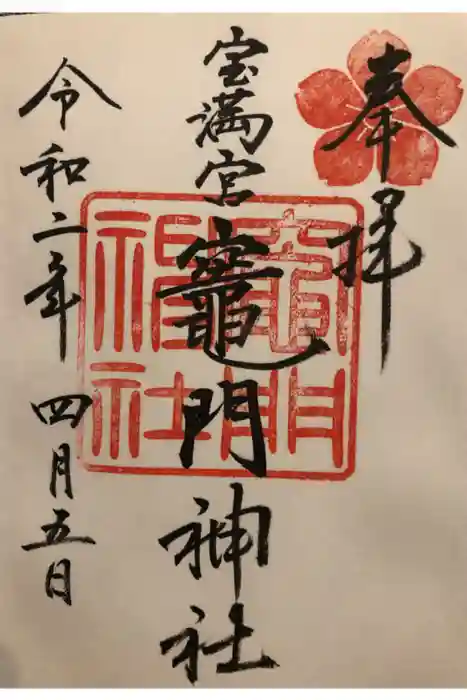 奉拝
宝満宮竈門神社
竈門神社
令和二年四月五日